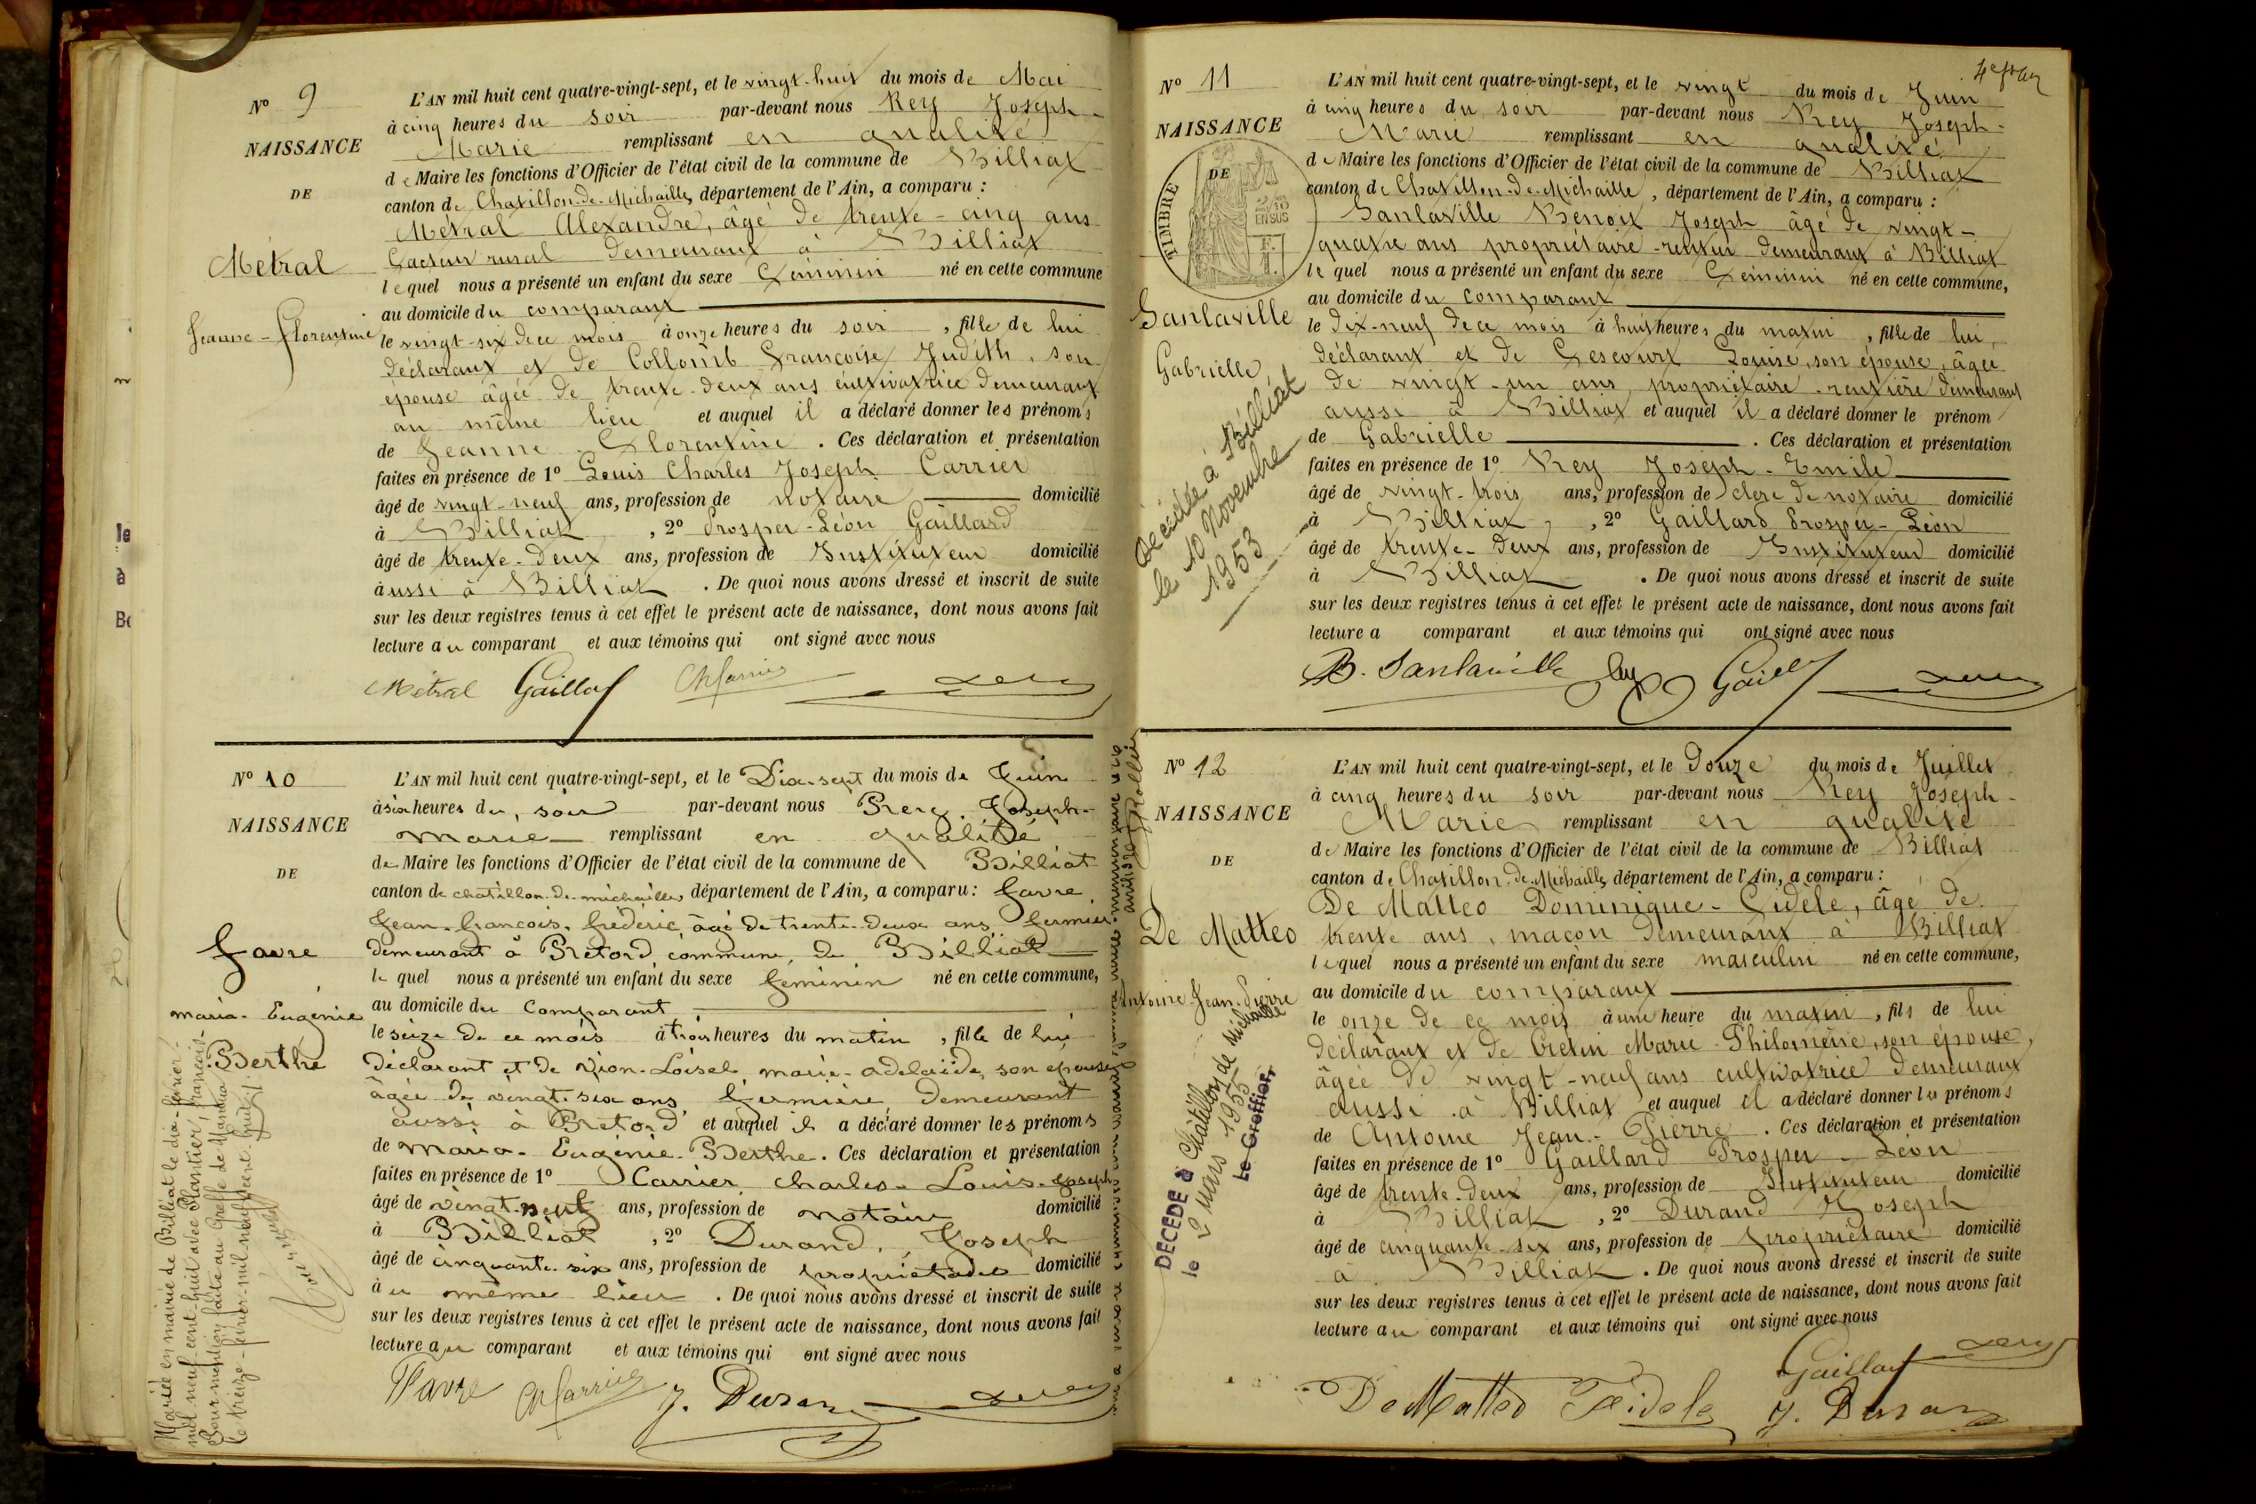 No 9
NAISSANCE
DE
Métral
Jeanne-Florentine
L'AN mil huit cent quatre-vingt-sept, et le vingt-huit du mois de Mai
à cinq heures du soir par-devant nous Rey Joseph-
Marie remplissant en qualité
de Maire les fonctions d'Officier de l'état civil de la commune de Billiat
canton de Chatillon-de-Michaille, département de l'Ain, a comparu :
Métral Alexandre, âgé de trente-cinq ans
facteur rural demeurant à Billiat
lequel nous a présenté un enfant du sexe féminin né en cette commune
au domicile du comparant
le vingt-six de ce mois à onze heures du soir, fille de lui
déclarant et de Collomb Françoise Judith, son
épouse âgée de trente-deux ans cultivatrice demeurant
au même lieu et auquel il a déclaré donner les prénoms
de Jeanne Florentine. Ces déclaration et présentation
faites en présence de 1º Louis Charles Joseph Carrier
âgé de vingt-neuf ans, profession de notaire domicilié
à Billiat, 2º Prosper-Léon Gaillard
âgé de trente-deux ans, profession de Instituteur domicilié
aussi à Billiat. De quoi nous avons dressé et inscrit de suite
sur les deux registres tenus à cet effet le présent acte de naissance, dont nous avons fait
lecture au comparant et aux témoins qui ont signé avec nous
Métral Gaillard Ch Carrier Rey
No 10
NAISSANCE
DE
Favre
Maria-Eugénie
Berthe
L'AN mil huit cent quatre-vingt-sept, et le Dix-sept du mois de Juin
à six heures du soir par-devant nous Rey Joseph-
Marie remplissant en qualité
de Maire les fonctions d'Officier de l'état civil de la commune de Billiat
canton de chatillon-de-michaille, département de l'Ain, a comparu : Favre
Jean-François-Frédéric, âgé de trente-deux ans fermier
demeurant à Bretord, commune de Billiat
lequel nous a présenté un enfant du sexe féminin né en cette commune,
au domicile du Comparant
le seize de ce mois à trois heures du matin, fille de lui
déclarant et de Vion-Loisel marie-adelaïde, son épouse
âgée de vingt-six ans fermière demeurant
aussi à Bretord et auquel il a déclaré donner les prénoms
de Maria-Eugénie-Berthe. Ces déclaration et présentation
faites en présence de 1º Carrier charles-Louis-Joseph
âgé de vingt-neuf ans, profession de notaire domicilié
à Billiat, 2º Durand, Joseph
âgé de cinquante-six ans, profession de propriétaire domicilié
au même lieu. De quoi nous avons dressé et inscrit de suite
sur les deux registres tenus à cet effet le présent acte de naissance, dont nous avons fait
lecture au comparant et aux témoins qui ont signé avec nous
Favre Ch Carrier J. Durand Rey
Mariée en mairie de Billiat le dix-février-
mil neuf-cent-huit avec Plantier, François.
Pour mention faite au Greffe de Nantua
le treize-février-mil neuf-cent-huit
No 11
NAISSANCE
DE
TIMBRE
Sanlaville
Gabrielle
Décédée à Billiat
le 10 Novembre
1953
L'AN mil huit cent quatre-vingt-sept, et le vingt du mois de Juin
à cinq heures du soir par-devant nous Rey Joseph-
Marie remplissant en qualité
de Maire les fonctions d'Officier de l'état civil de la commune de Billiat
canton de Chatillon-de-Michaille, département de l'Ain, a comparu :
Sanlaville Benoit Joseph âgé de vingt-
quatre ans propriétaire-rentier demeurant à Billiat
lequel nous a présenté un enfant du sexe féminin né en cette commune,
au domicile du comparant
le dix-neuf de ce mois à huit heures du matin, fille de lui,
déclarant et de Lescourt Louise, son épouse, âgée
de vingt-un ans propriétaire-rentière demeurant
aussi à Billiat et auquel il a déclaré donner le prénom
de Gabrielle. Ces déclaration et présentation
faites en présence de 1º Rey Joseph-Emile
âgé de vingt-trois ans, profession de clerc de notaire domicilié
à Billiat, 2º Gaillard Prosper-Léon
âgé de trente-deux ans, profession de Instituteur domicilié
à Billiat. De quoi nous avons dressé et inscrit de suite
sur les deux registres tenus à cet effet le présent acte de naissance, dont nous avons fait
lecture a comparant et aux témoins qui ont signé avec nous
B. Sanlaville Rey Gaillard Rey
No 12
NAISSANCE
DE
De Matteo
Antoine-Jean-Pierre
DÉCÉDÉ à Châtillon de Michaille
le 2 Mars 1955
Le Greffier,
L'AN mil huit cent quatre-vingt-sept, et le Douze du mois de Juillet
à cinq heures du soir par-devant nous Rey Joseph-
Marie remplissant en qualité
de Maire les fonctions d'Officier de l'état civil de la commune de Billiat
canton de Chatillon-de-Michaille, département de l'Ain, a comparu :
De Matteo Dominique-Fidèle, âgé de
trente ans, maçon demeurant à Billiat
lequel nous a présenté un enfant du sexe masculin né en cette commune,
au domicile du comparant
le onze de ce mois à une heure du matin, fils de lui
déclarant et de Cretin Marie-Philomène, son épouse,
âgée de vingt-neuf ans cultivatrice demeurant
aussi à Billiat et auquel il a déclaré donner les prénoms
de Antoine Jean-Pierre. Ces déclaration et présentation
faites en présence de 1º Gaillard Prosper-Léon
âgé de trente-deux ans, profession de Instituteur domicilié
à Billiat, 2º Durand Joseph
âgé de cinquante-six ans, profession de propriétaire domicilié
à Billiat. De quoi nous avons dressé et inscrit de suite
sur les deux registres tenus à cet effet le présent acte de naissance, dont nous avons fait
lecture au comparant et aux témoins qui ont signé avec nous
Gaillard Rey
De Matteo Fidele J. Durand